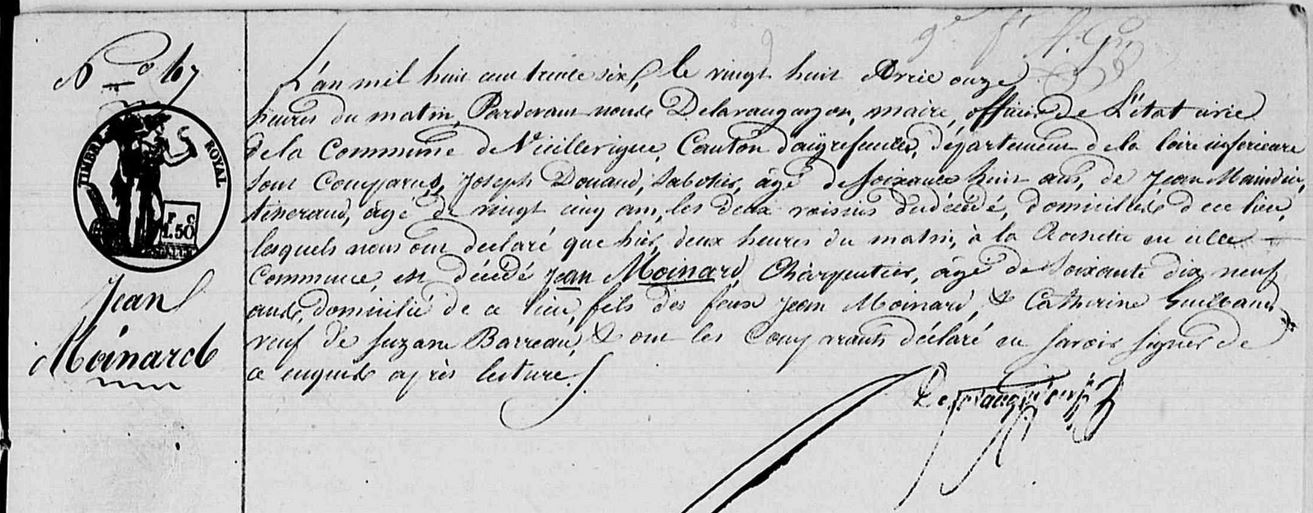 N.o 67
TIMBRE ROYAL
1.50
Jean
Moinard
L'an mil huit cent trente six, le vingt huit Avril onze
heures du matin, Pardevant nous Delavauguyon, maire, officier de L'état civil
de la Commune de Vieillevigne, Canton d'aigrefeuille, département de la loire inférieure
sont Comparus, Joseph Douaud, Sabotier, âgé de soixante huit ans, de Jean
tisserand, âgé de vingt cinq ans, les deux voisins du décédé, domiciliés de ce lieu,
lesquels nous ont déclaré que hier, deux heures du matin, à la en cette
Commune, est décédé Jean Moinard, Charpentier, âgé de Soixante dix neuf
ans, domicilié de ce lieu, fils des feux Jean Moinard, & Catherine Guilbaud
veuf de Suzane Barreau, & ont les Comparants déclaré ne savoir signer de
ce enquis après lecture.